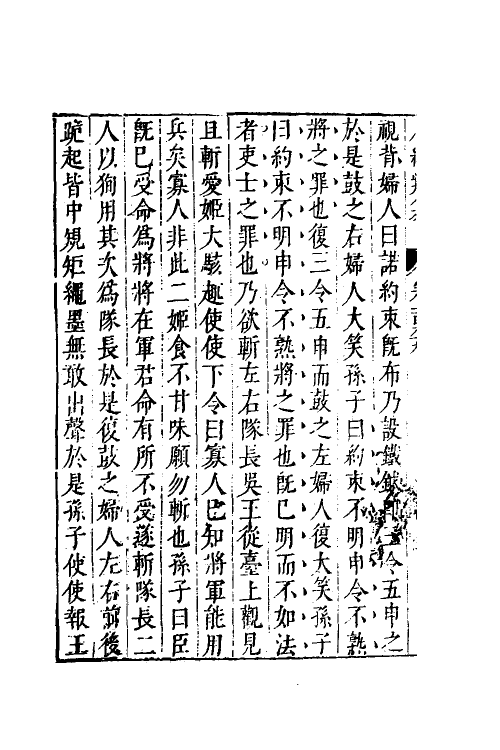 視背婦人曰諾約束既布乃設鐵鉞即三令五申之
於是鼓之右婦人大笑孫子曰約束不明申令不熟
將之罪也復三令五申而鼓之左婦人復大笑孫子
曰約束不明申令不熟將之罪也既已明而不如法
者吏士之罪也乃欲斬左右隊長吳王從臺上觀見
且斬愛姬大駭趣使使下令曰寡人已知將軍能用
兵矣寡人非此二姬食不甘味願勿斬也孫子曰臣
既已受命為將將在軍君命有所不受遂斬隊長二
人以狥用其次為隊長於是復鼓之婦人左右前後
跪起皆中規矩繩墨無敢出聲於是孫子使使報王